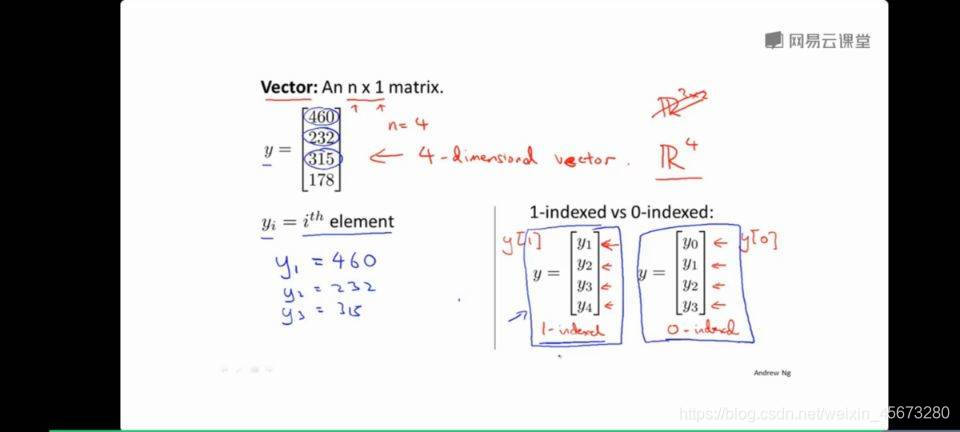 网易云课堂
Vector: An n x 1 matrix.
y = [460 232 315 178]
n=4
← 4-dimensional vector.
ℝ³ˣ²
ℝ⁴
yᵢ = iᵗʰ element
y₁ = 460
y₂ = 232
y₃ = 315
1-indexed vs 0-indexed:
y[1]
y = [y₁ y₂ y₃ y₄]
1-indexed
y[0]
y = [y₀ y₁ y₂ y₃]
0-indexed
Andrew Ng
https://blog.csdn.net/weixin_45673280